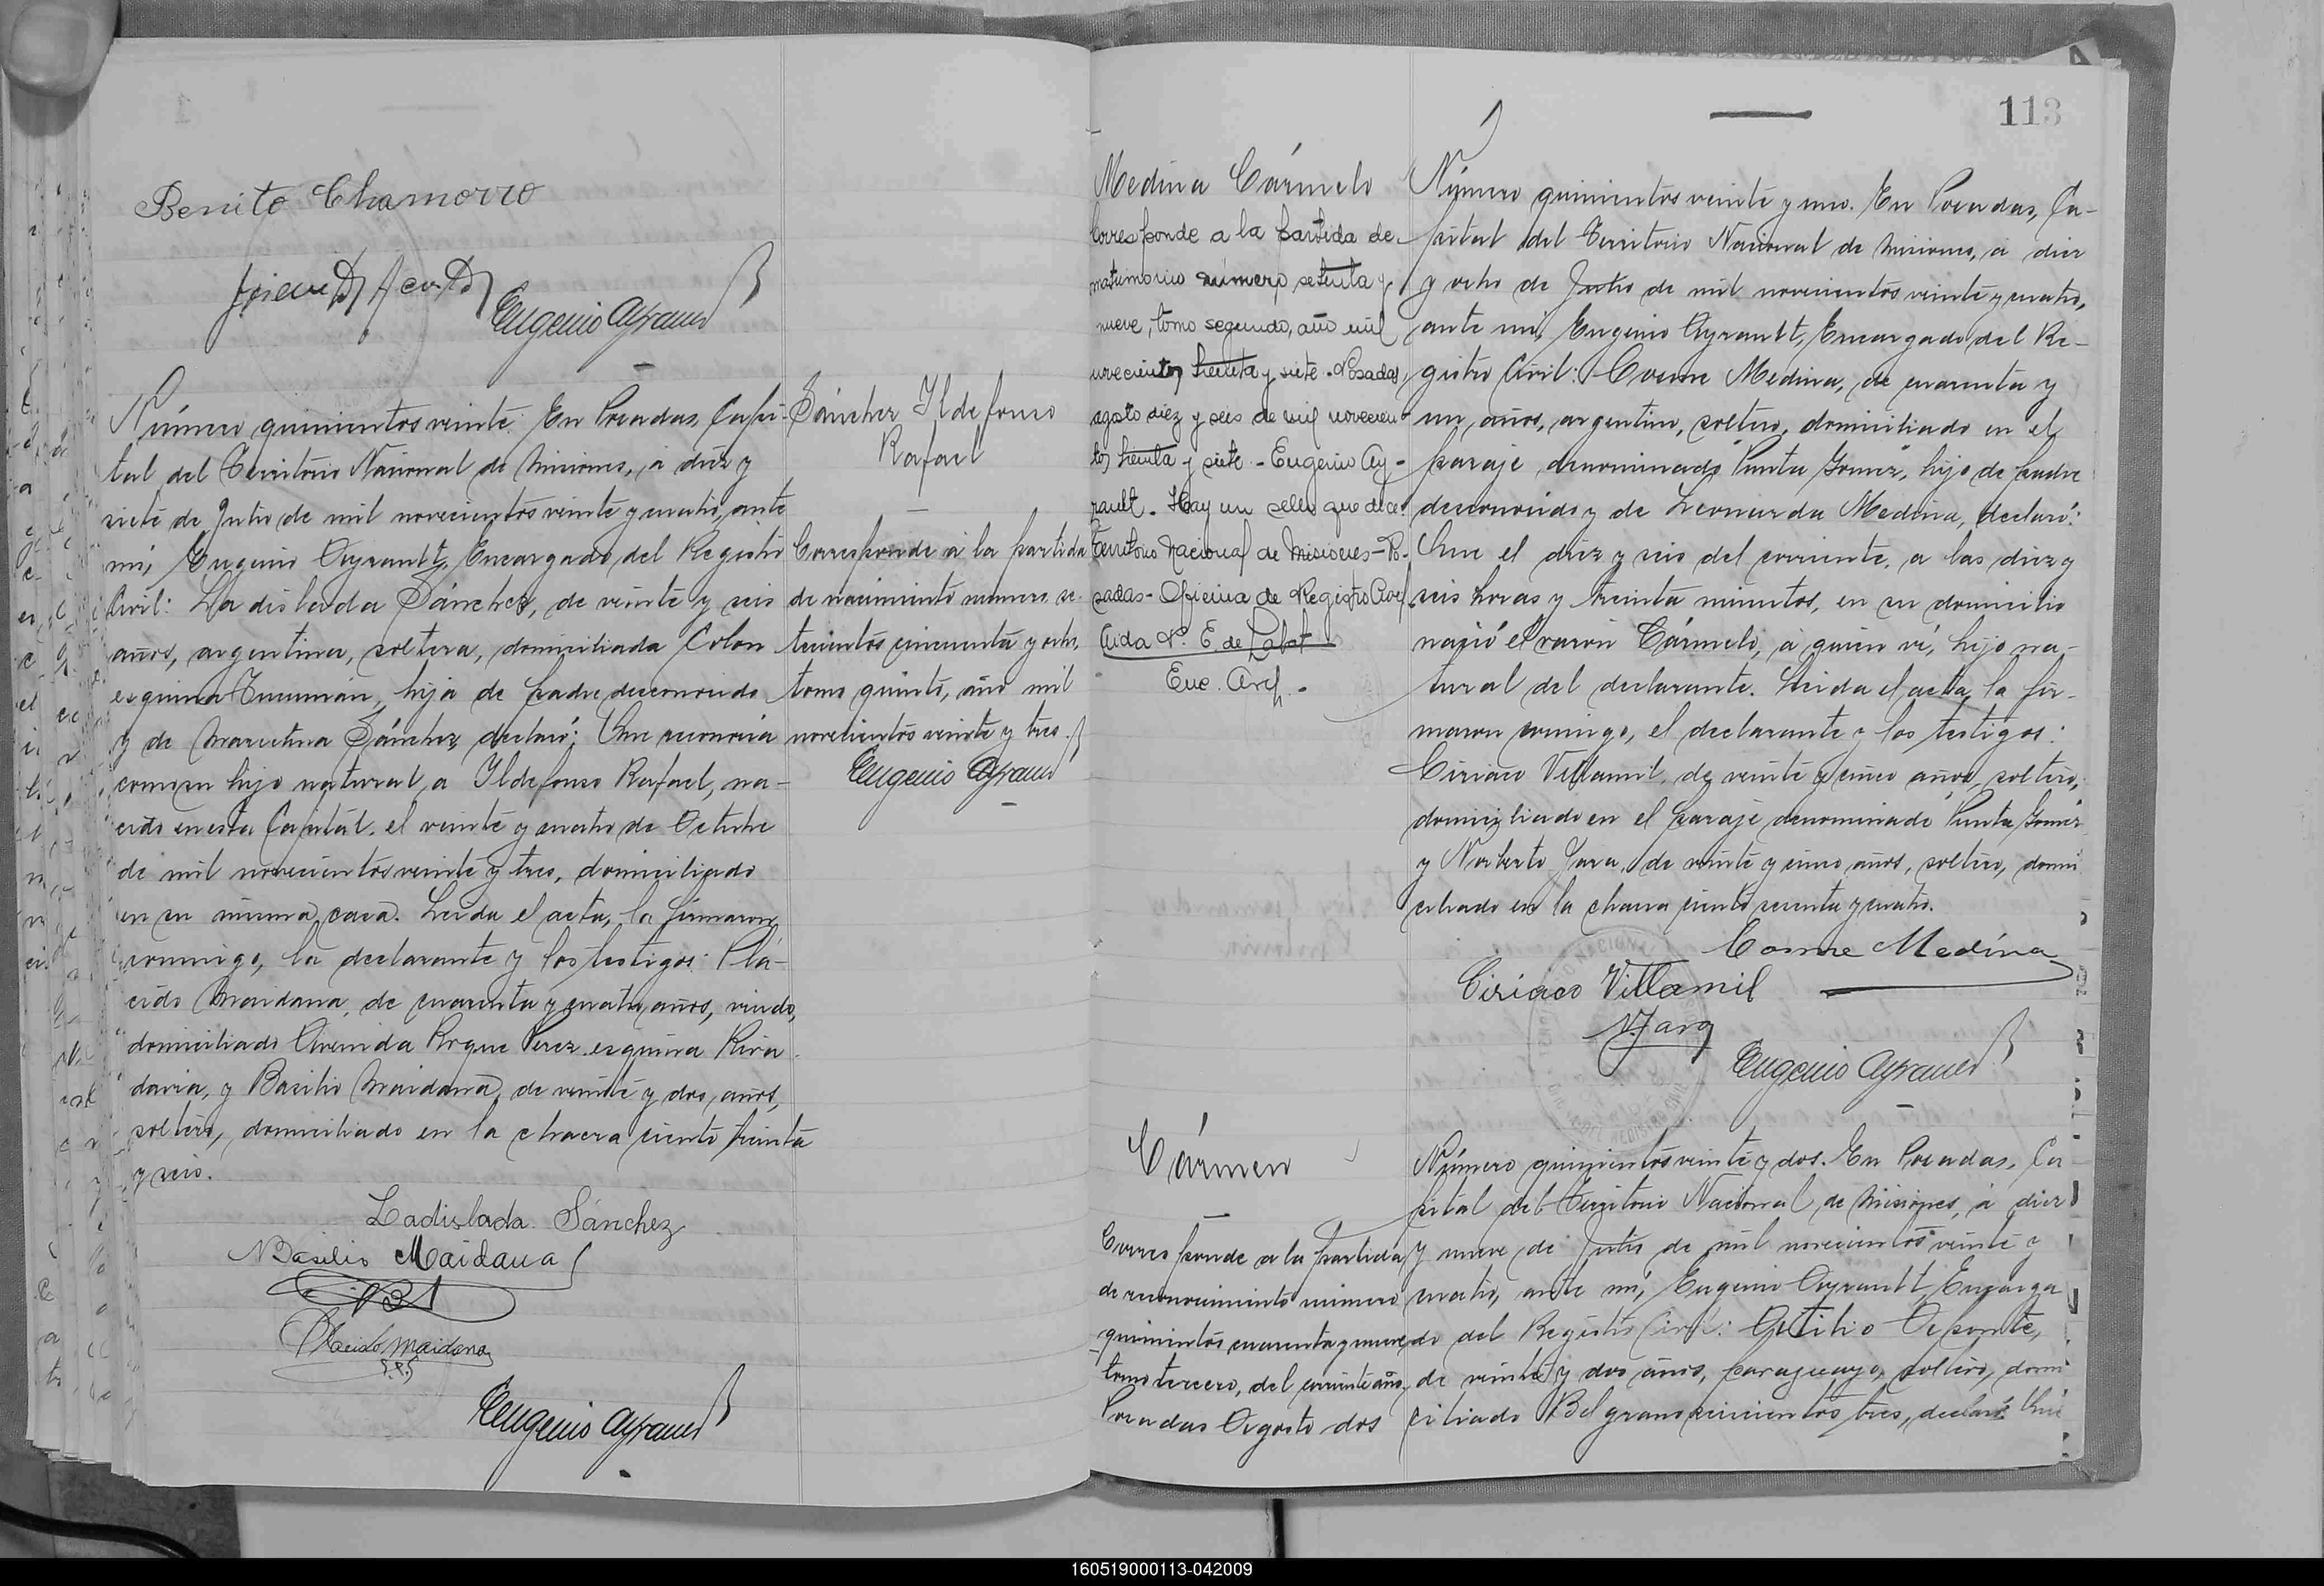 Benito Chamorro
Eugenio Ayrault
Número quinientos veinte. En Posadas, Capi-
tal del Territorio Nacional de Misiones, a diez y
siete de Julio de mil novecientos veinte y cuatro, ante
mí, Eugenio Ayrault, Encargado del Registro
Civil: Ladislada Sánchez, de veinte y seis
años, argentina, soltera, domiciliada Colon
esquina Tucumán, hija de padre desconocido
y de Marcelina Sánchez, declaró: Que reconocia
como su hijo natural, a Ildefonso Rafael, na-
cido en esta Capital, el veinte y cuatro de Octubre
de mil novecientos veinte y tres, domiciliado
en su misma casa. Leida el acta, la firmaron
conmigo, la declarante y los testigos: Plá-
cido Maidana, de cuarenta y cuatro años, viudo,
domiciliado Avenida Roque Perez esquina Riva
davia, y Basilio Maidana, de veinte y dos años,
soltero, domiciliado en la chacra ciento treinta
y seis.
Ladislada Sánchez
Basilio Maidana
Placido Maidana
Eugenio Ayrault
Sánchez Ildefonso
Rafael
Corresponde a la partida
de nacimiento numero se-
tecientos cincuenta y ocho,
tomo quinto, año mil
novecientos veinte y tres.
Eugenio Ayrault
113
Medina Cármelo
Corresponde a la partida de
matrimonio número setenta y
nueve, tomo segundo, año mil
novecientos treinta y siete. Posadas,
agosto diez y seis de mil novecien-
tos treinta y siete - Eugenio Ay-
rault. Hay un sello que dice:
Territorio Nacional de Misiones - Po-
sadas - Oficina de Registro Civil
Aida N. E. de Labat
Enc. Arch.
Número quinientos veinte y uno. En Posadas, Ca-
pital del Territorio Nacional de Misiones, a diez
y ocho de Julio de mil novecientos veinte y cuatro,
ante mí, Eugenio Ayrault, Encargado del Re-
gistro Civil: Cosme Medina, de cuarenta y
un años, argentino, soltero, domiciliado en el
paraje denominado "Punta Gomez", hijo de padre
desconocido y de Leonarda Medina, declaró:
Que el diez y seis del corriente, a las diez y
seis horas y treinta minutos, en su domicilio
nació el varón Cármelo, a quien ví, hijo na-
tural del declarante. Leida el acta, la fir-
maron conmigo, el declarante y los testigos:
Ciriaco Villamil, de veinte y cinco años, soltero,
domiciliado en el paraje denominado "Punta Gomez"
y Norberto Jara, de veinte y cinco años, soltero, domi
ciliado en la chacra ciento sesenta y cuatro.
Cosme Medina
Ciriaco Villamil
N. Jara
Eugenio Ayrault
Cármen
Corresponde a la partida
de reconocimiento número
quinientos cuarenta y nueve
tomo tercero, del corriente año,
Posadas Agosto dos
Número quinientos veinte y dos. En Posadas, Ca
pital del Territorio Nacional de Misiones, a diez
y nueve de Julio de mil novecientos veinte y
cuatro, ante mí, Eugenio Ayrault, Encarga
do del Registro Civil: Otilio
de veinte y dos años, paraguayo, soltero, domi
ciliado Belgrano seiscientos tres, declaró: Que
160519000113-042009